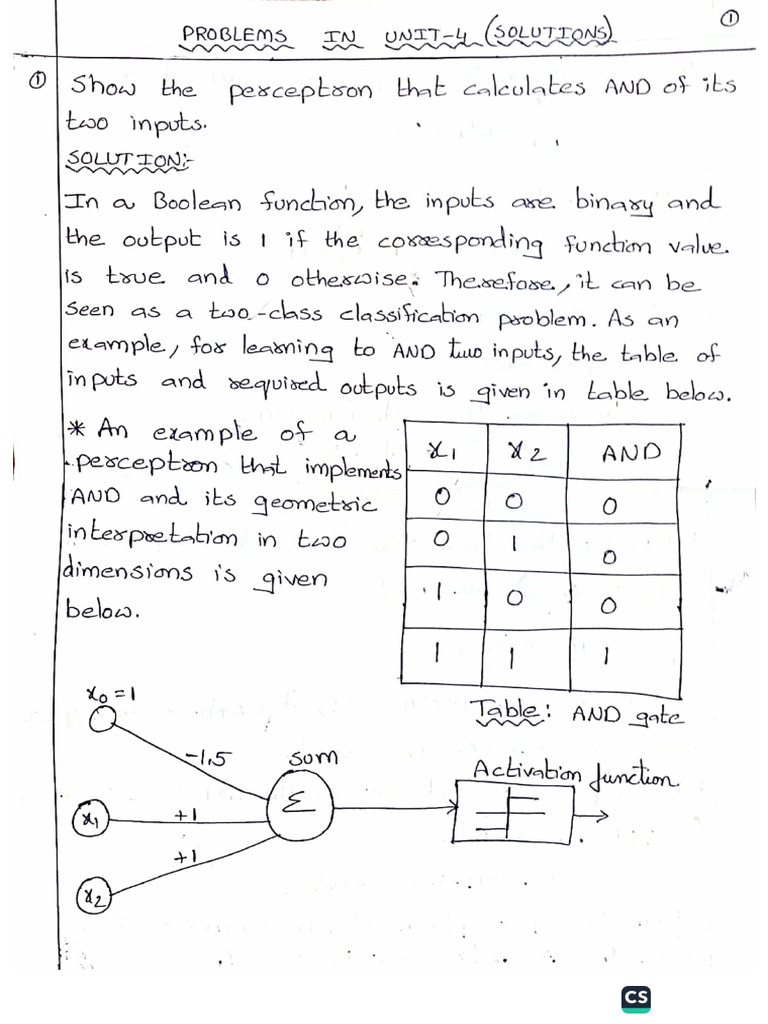 ①
PROBLEMS IN UNIT-4 (SOLUTIONS)
① Show the perceptron that calculates AND of its
two inputs.
SOLUTION:-
In a Boolean function, the inputs are binary and
the output is 1 if the corresponding function value
is true and 0 otherwise. Therefore, it can be
seen as a two-class classification problem. As an
example, for learning to AND two inputs, the table of
inputs and required outputs is given in table below.
* An example of a
perceptron that implements
AND and its geometric
interpretation in two
dimensions is given
below.
x1 x2 AND
0 0 0
0 1 0
1 0 0
1 1 1
Table: AND gate
x0 = 1
-1.5
sum
Σ
Activation function
x1
+1
+1
x2
CS